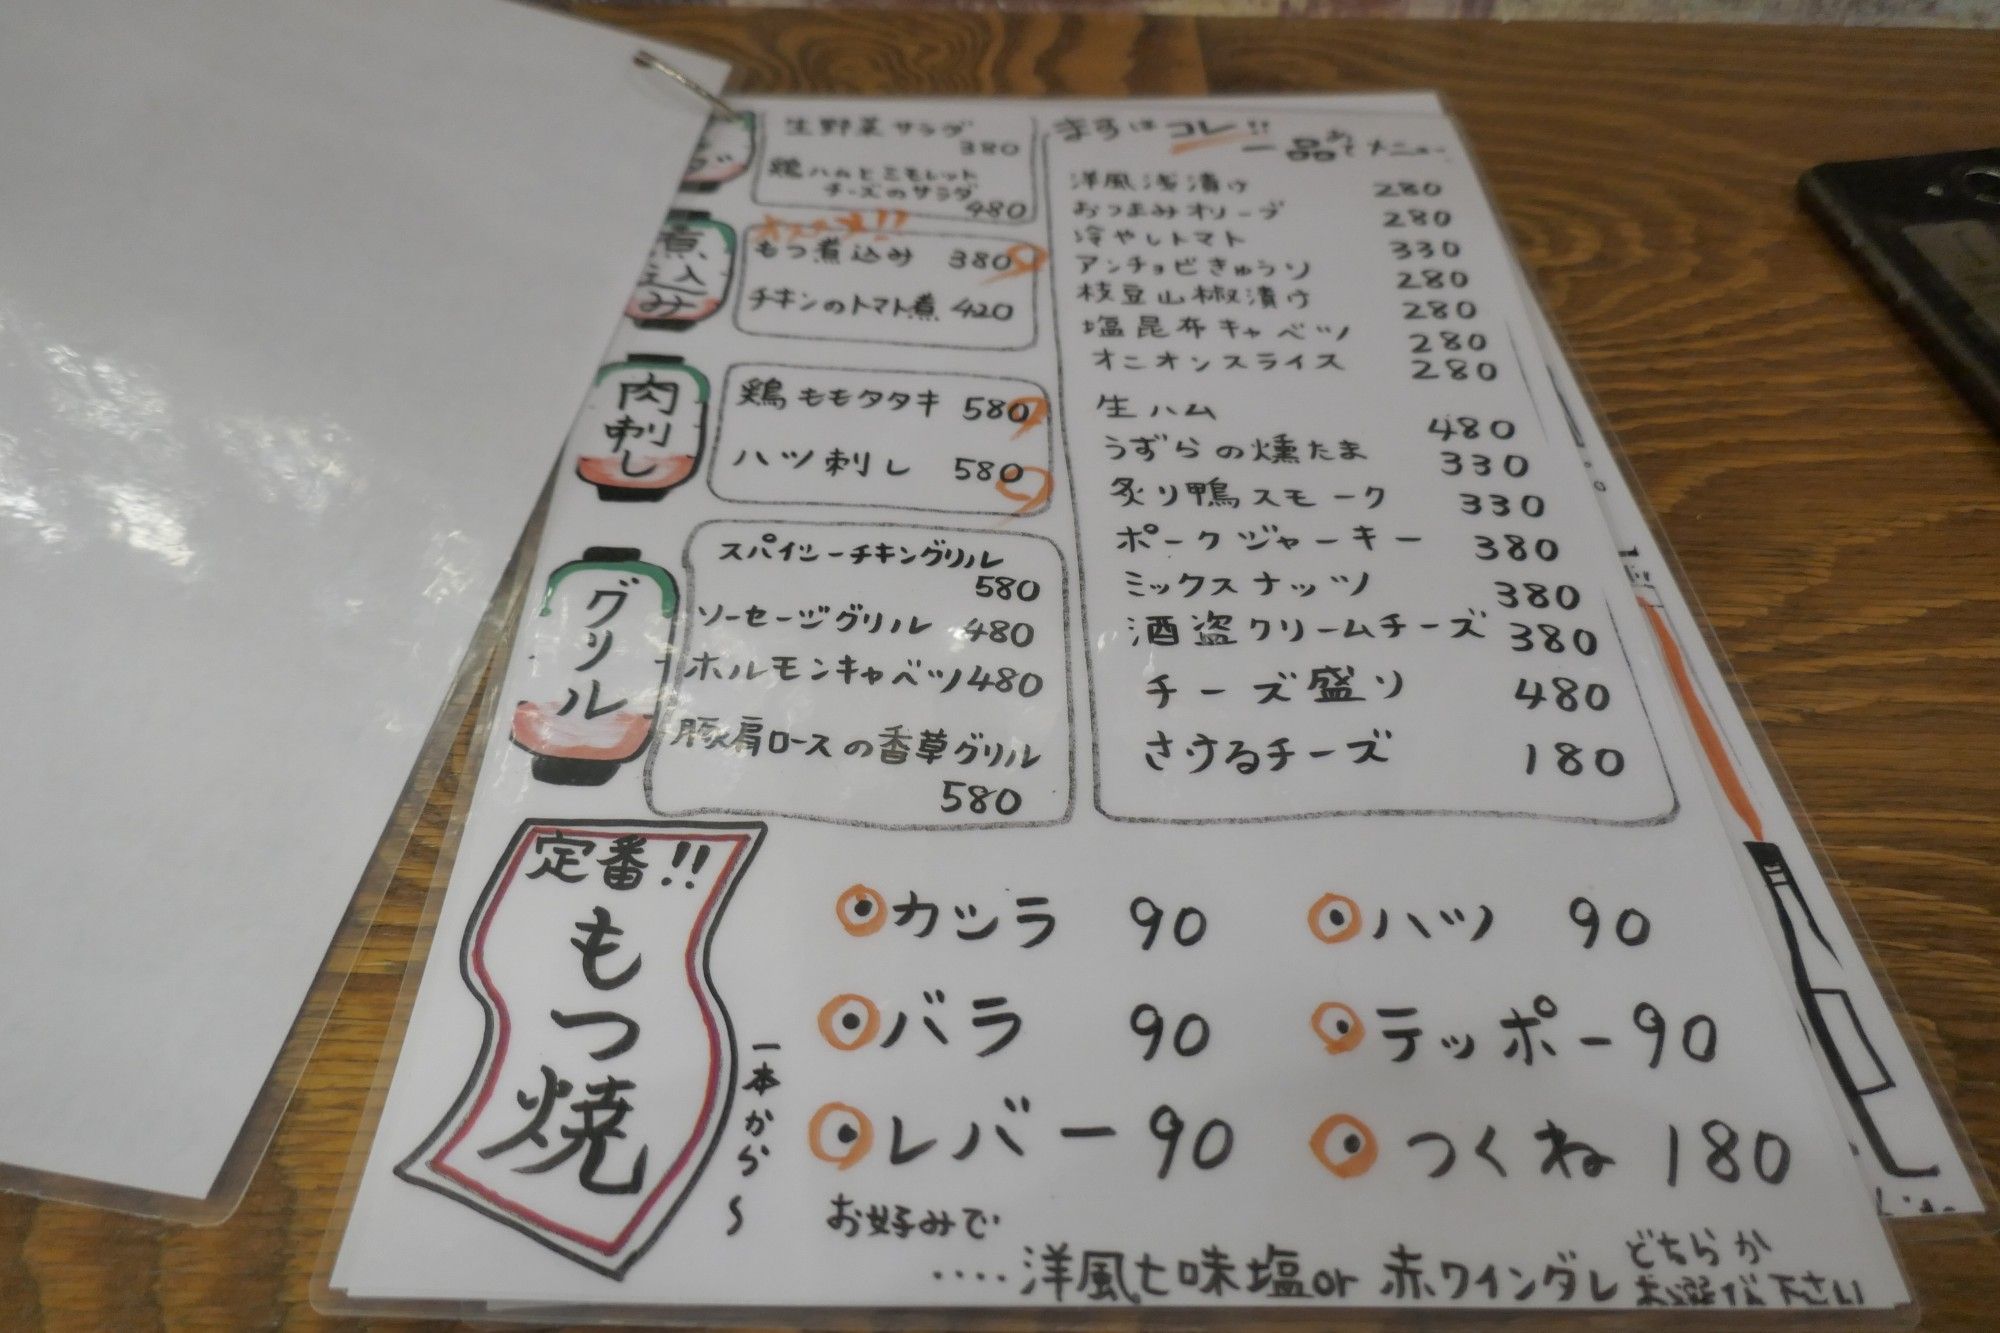 生野菜サラダ
380
鶏ハムとミモレット
チーズのサラダ
480
煮込み
オススメ!!
もつ煮込み 380
チキンのトマト煮 420
肉刺し
鶏ももタタキ 580
ハツ刺し 580
グリル
スパイシーチキングリル
580
ソーセージグリル 480
ホルモンキャベツ 480
豚肩ロースの香草グリル
580
まずはコレ!!
一品あてメニュー
洋風浅漬け 280
おつまみオリーブ 280
冷やしトマト 330
アンチョビきゅうり 280
枝豆山椒漬け 280
塩昆布キャベツ 280
オニオンスライス 280
生ハム 480
うずらの燻たま 330
炙り鴨スモーク 330
ポークジャーキー 380
ミックスナッツ 380
酒盗クリームチーズ 380
チーズ盛り 480
さけるチーズ 180
定番!!
もつ焼
一本から〜
カシラ 90
ハツ 90
バラ 90
テッポー 90
レバー 90
つくね 180
お好みで
....洋風七味塩or赤ワインダレ
どちらか
お選び下さい